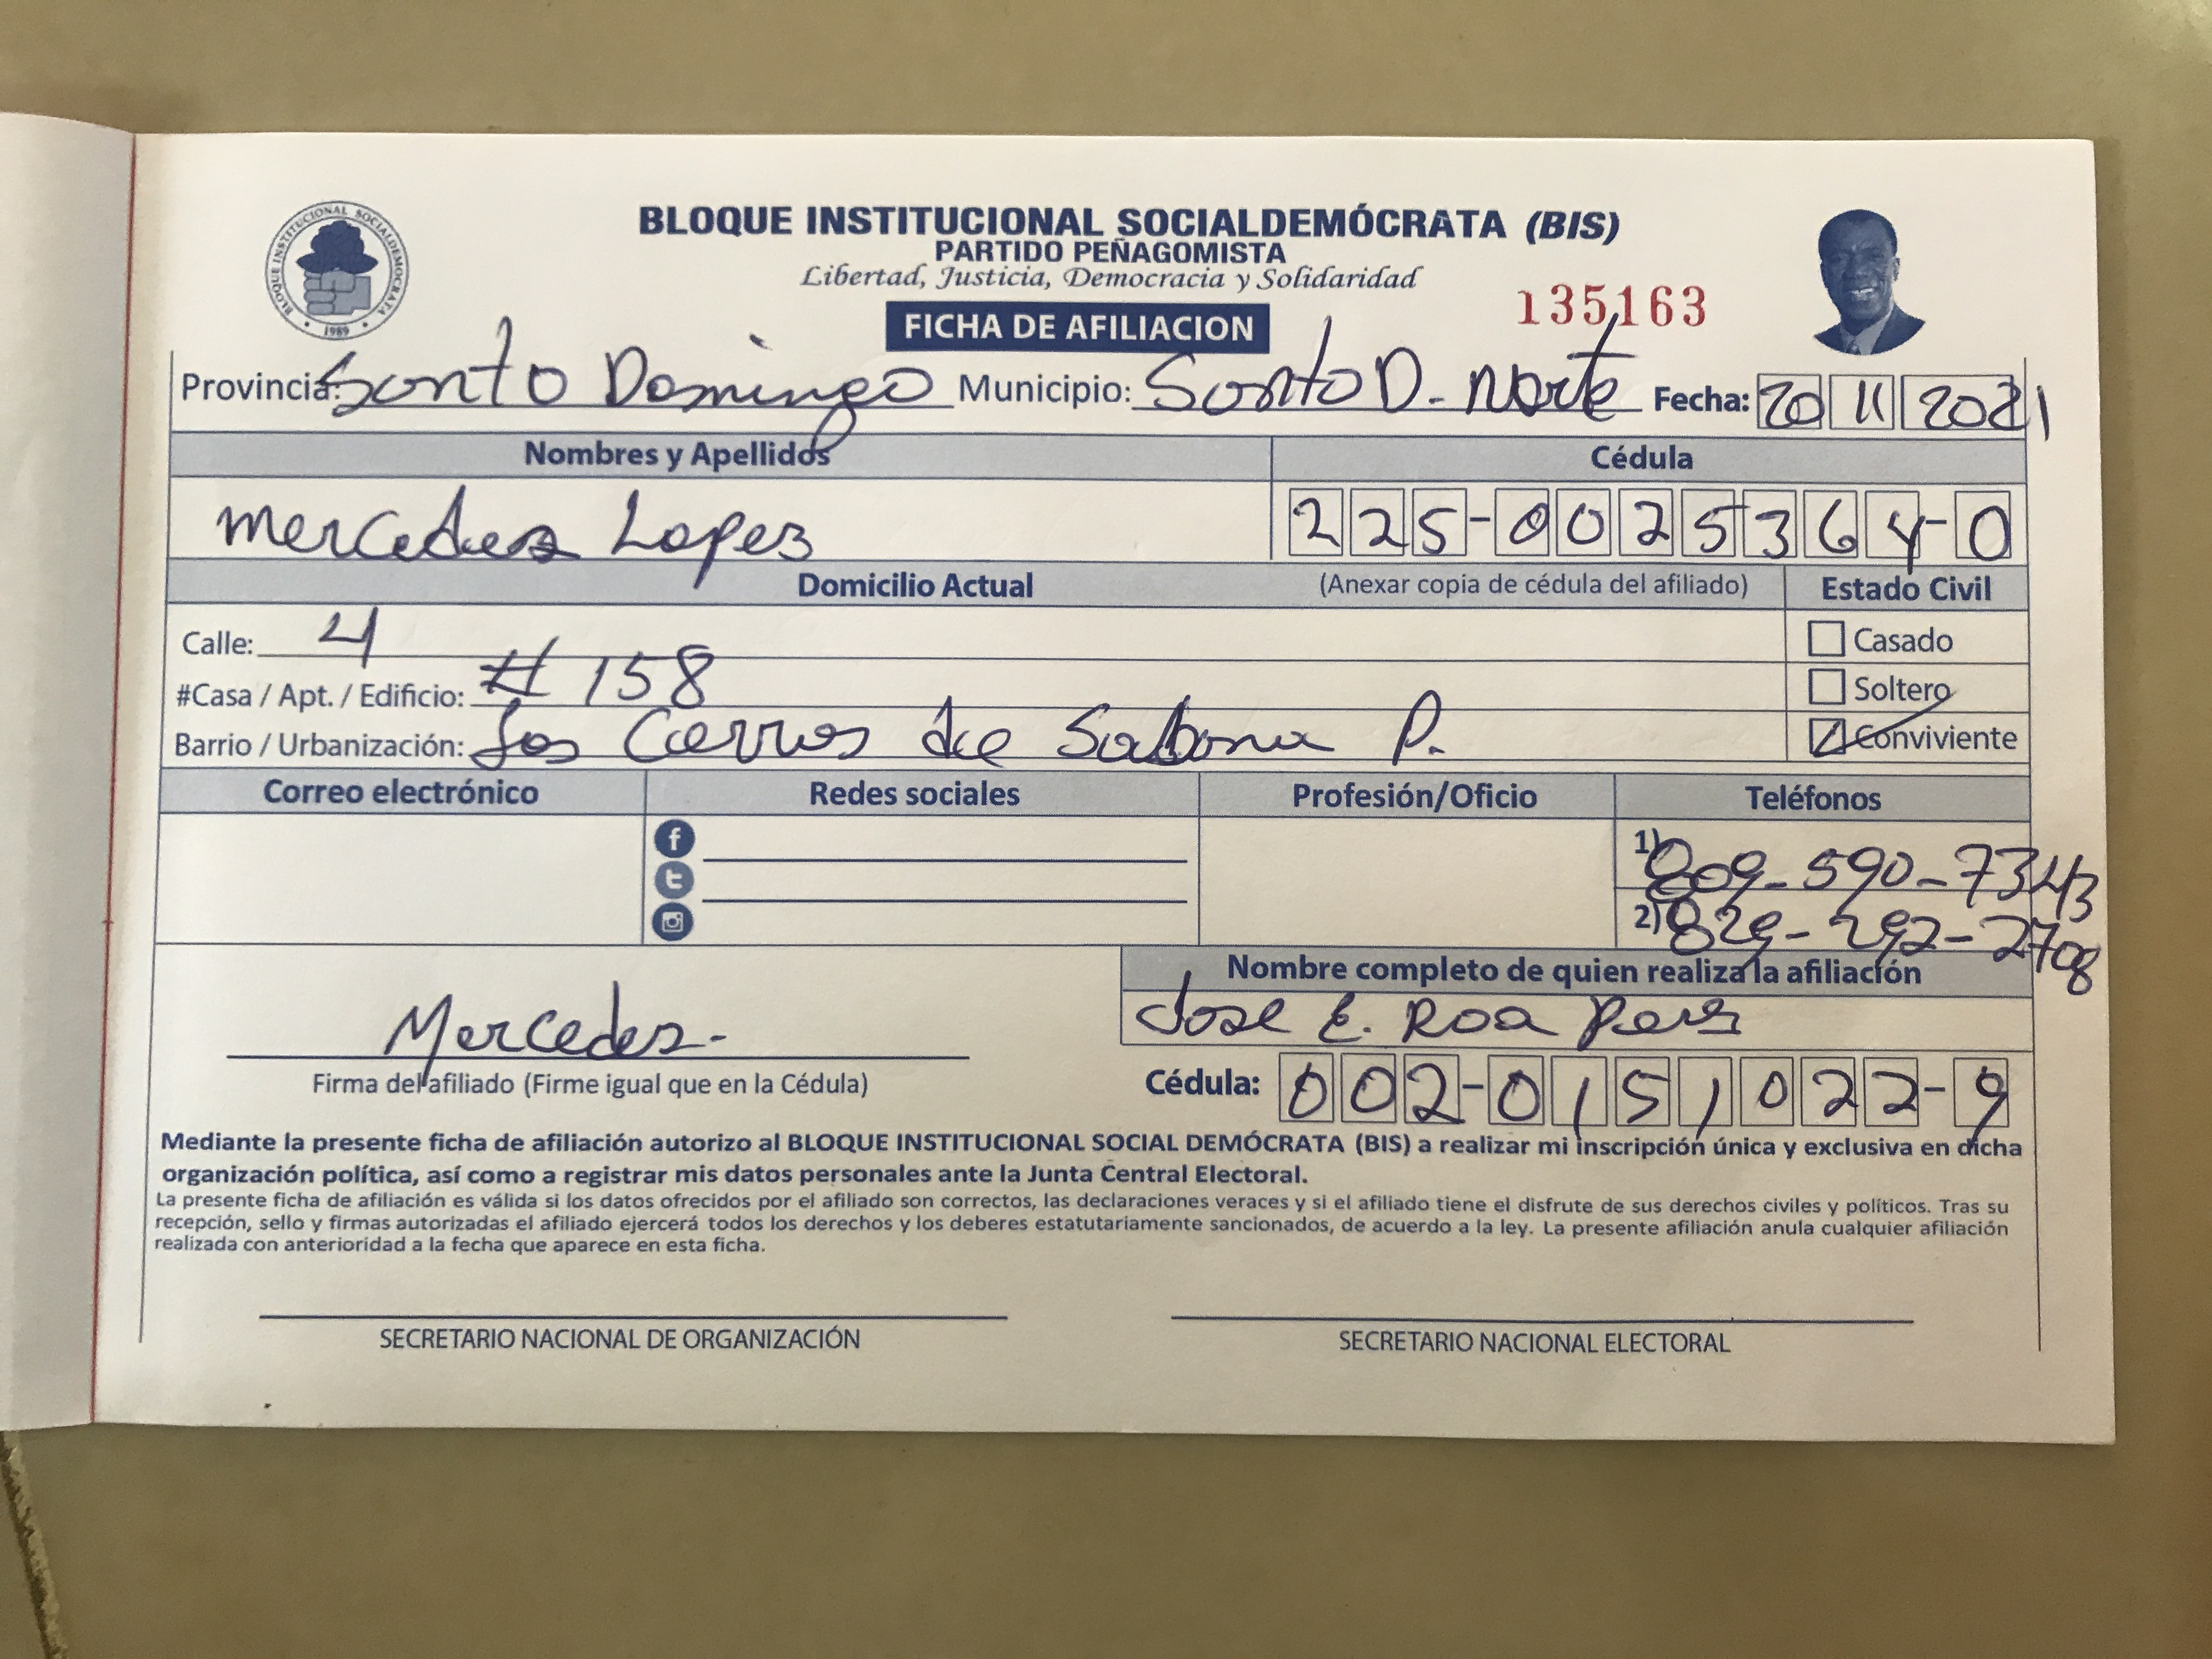 BLOQUE INSTITUCIONAL SOCIALDEMÓCRATA (BIS)
PARTIDO PEÑAGOMISTA
Libertad, Justicia, Democracia y Solidaridad
BLOQUE INSTITUCIONAL SOCIALDEMOCRATA
1989
135163
FICHA DE AFILIACION
Provincia: Santo Domingo Municipio: Santo D. Norte Fecha: 20 11 2021
Nombres y Apellidos Cédula
Mercedes Lopez 225-0025364-0
Domicilio Actual (Anexar copia de cédula del afiliado) Estado Civil
Calle: 4 Casado
#Casa / Apt. / Edificio: # 158 Soltero
Barrio / Urbanización: Los Cerros de Sabana P. Conviviente
Correo electrónico Redes sociales Profesión/Oficio Teléfonos
1) 809-590-7343
2) 829-292-2708
Nombre completo de quien realiza la afiliación
Jose E. Roa
Mercedes-
Firma del afiliado (Firme igual que en la Cédula) Cédula: 002-0151022-9
Mediante la presente ficha de afiliación autorizo al BLOQUE INSTITUCIONAL SOCIAL DEMÓCRATA (BIS) a realizar mi inscripción única y exclusiva en dicha
organización política, así como a registrar mis datos personales ante la Junta Central Electoral.
La presente ficha de afiliación es válida si los datos ofrecidos por el afiliado son correctos, las declaraciones veraces y si el afiliado tiene el disfrute de sus derechos civiles y políticos. Tras su
recepción, sello y firmas autorizadas el afiliado ejercerá todos los derechos y los deberes estatutariamente sancionados, de acuerdo a la ley. La presente afiliación anula cualquier afiliación
realizada con anterioridad a la fecha que aparece en esta ficha.
SECRETARIO NACIONAL DE ORGANIZACIÓN SECRETARIO NACIONAL ELECTORAL